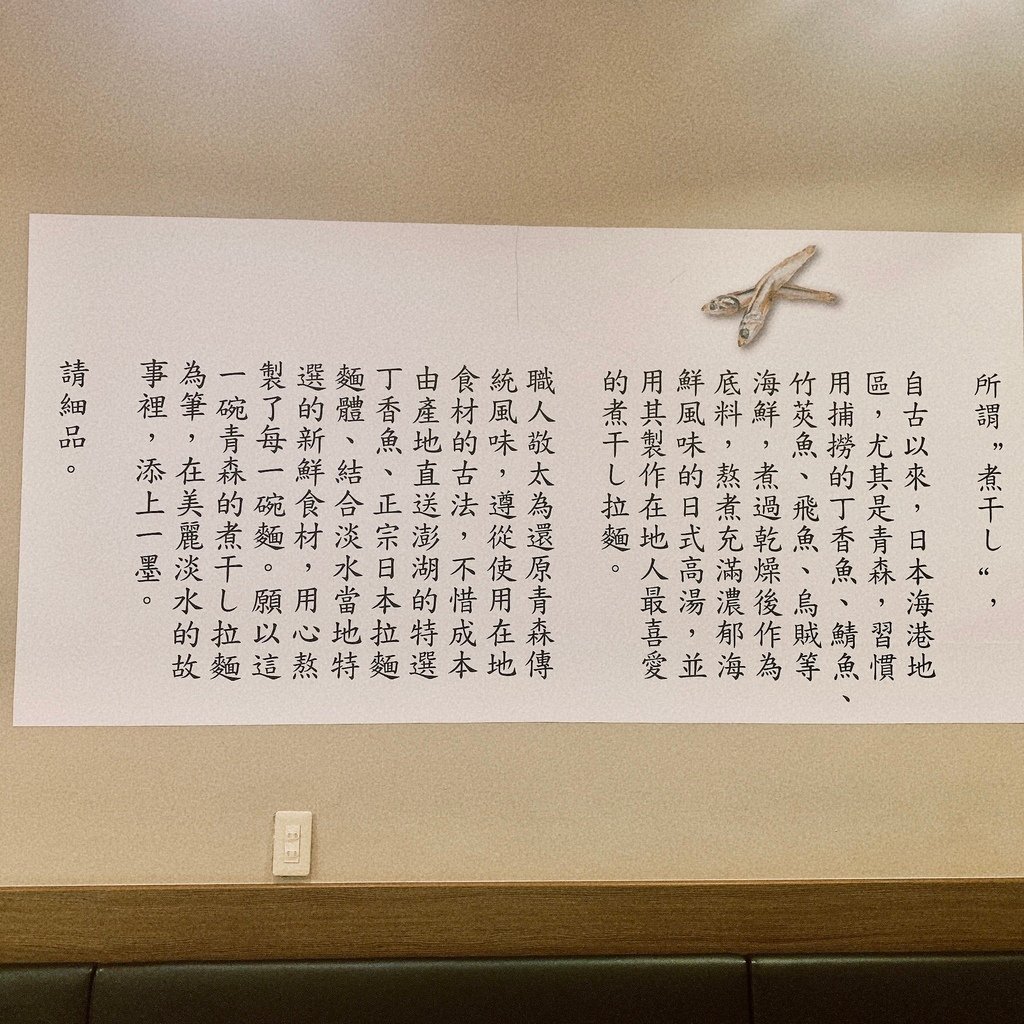 所謂”煮干し“，
自古以來，日本海港地
區，尤其是青森，習慣
用捕撈的丁香魚、鯖魚、
竹莢魚、飛魚、烏賊等
海鮮，煮過乾燥後作為
底料，熬煮充滿濃郁海
鮮風味的日式高湯，並
用其製作在地人最喜愛
的煮干し拉麵。
職人敬太為還原青森傳
統風味，遵從使用在地
食材的古法，不惜成本
由產地直送澎湖的特選
丁香魚、正宗日本拉麵
麵體、結合淡水當地特
選的新鮮食材，用心熬
製了每一碗麵。願以這
一碗青森的煮干し拉麵
為筆，在美麗淡水的故
事裡，添上一墨。
請細品。